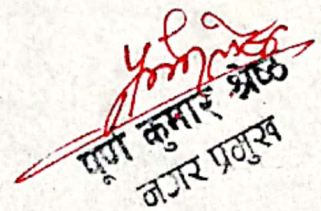 पूर्ण कुमार श्रेष्ठ
नगर प्रमुख